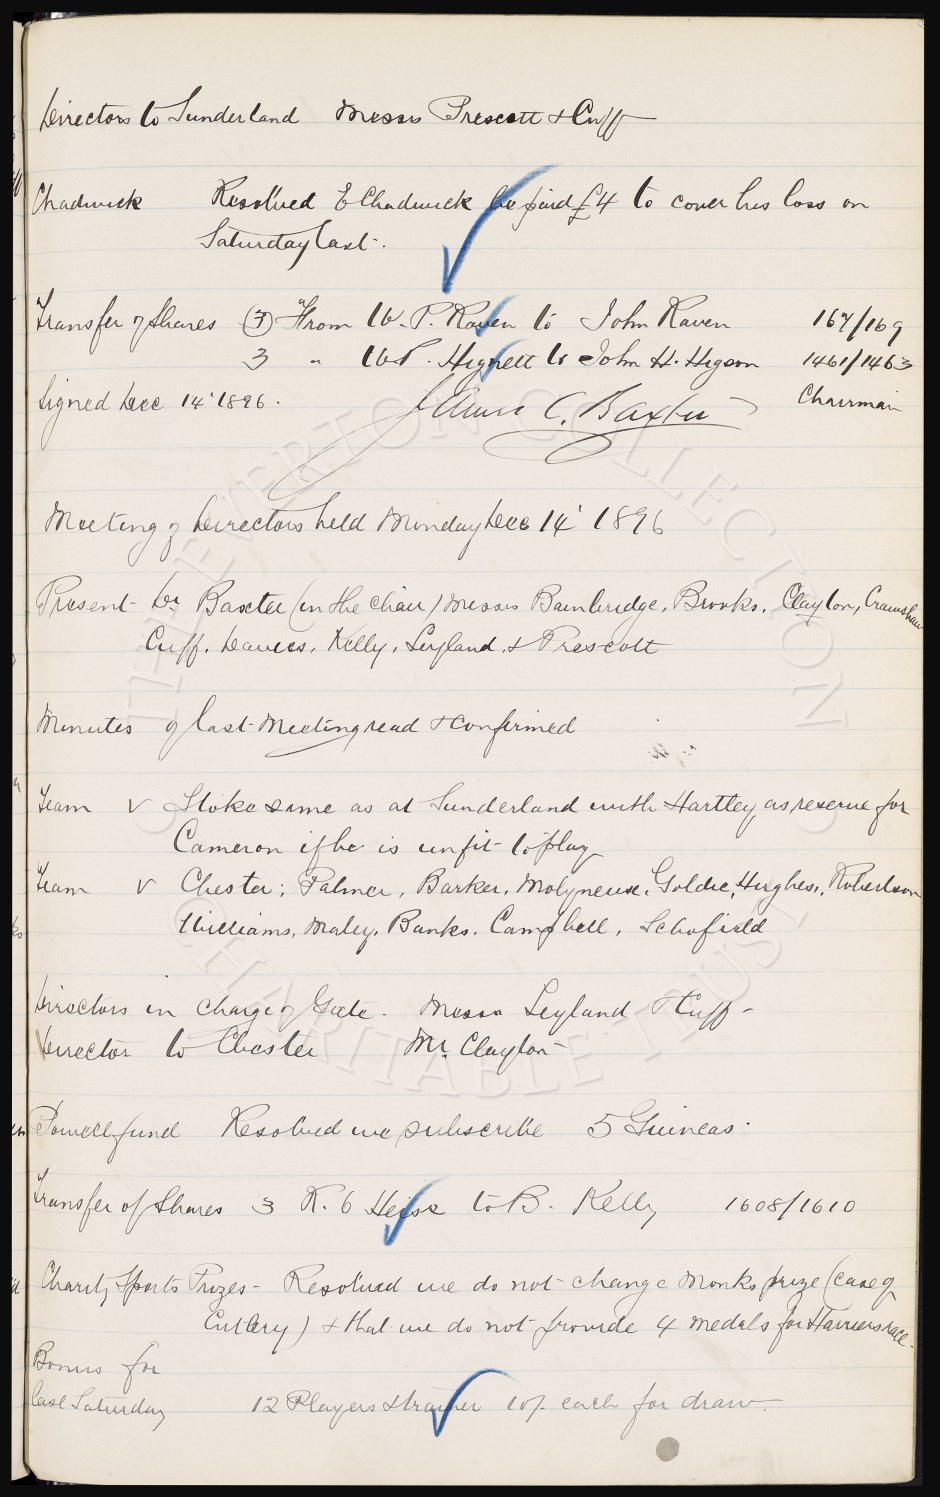 Directors to Sunderland Messrs Prescott & Cuff
Chadwick Resolved E Chadwick be paid £4 to cover his loss on
Saturday last.
Transfer of Shares (3) From W. P. Raven to John Raven 167/169
3 " W P. Hignett to John H. Higson 1461/1463
Signed Dec 14' 1896. James C. Baxter Chairman
Meeting of Directors held Monday Dec 14' 1896
Present Dr Baxter (in the chair) Messrs Bainbridge, Brooks, Clayton, Crawshaw
Cuff, Davies, Kelly, Leyland, & Prescott
Minutes of last Meeting read & confirmed
Team v Stoke same as at Sunderland with Hartley as reserve for
Cameron if he is unfit to play
Team v Chester; Palmer, Barker, Molyneux, Goldie, Hughes, Robertson
Williams, Maley, Banks, Campbell, Schofield
Directors in charge of Gate. Messrs Leyland & Cuff
Director to Chester Mr. Clayton
Powell fund Resolved we subscribe 5 Guineas.
Transfer of Shares 3 R. C Heiss to B. Kelly 1608/1610
Charity Sports Prizes - Resolved we do not change Monks prize (case of
Cutlery) & that we do not provide 4 medals for Harriers race.
Bonus for
last Saturday 12 Players & trainer 10/. each for draw.
THE EVERTON COLLECTION
CHARITABLE TRUST